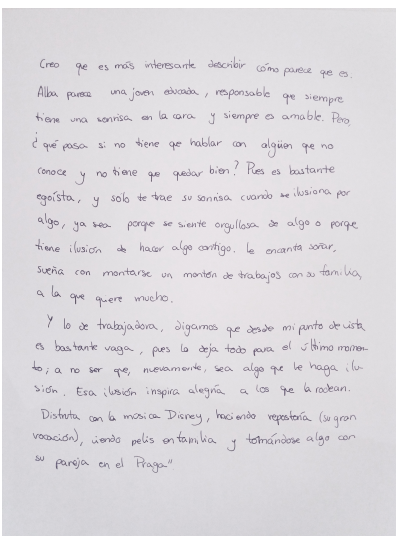 Creo que es más interesante describir cómo parece que es.
Alba parece una joven educada, responsable que siempre
tiene una sonrisa en la cara y siempre es amable. Pero,
¿qué pasa si no tiene que hablar con alguien que no
conoce y no tiene que quedar bien? Pues es bastante
egoísta, y solo te trae su sonrisa cuando se ilusiona por
algo, ya sea porque se siente orgullosa de algo o porque
tiene ilusión de hacer algo contigo. Le encanta soñar,
sueña con montarse un montón de trabajos con su familia,
a la que quere mucho.
Y lo de trabajadora, digamos que desde mi punto de vista
es bastante vaga, pues lo deja todo para el último momen-
to; a no ser que, nuevamente, sea algo que le haga ilu-
sión. Esa ilusión inspira alegría a los que la rodean.
Disfruta con la música Disney, haciendo repostería (su gran
vocación), viendo pelis en familia y tomándose algo con
su pareja en el Praga"